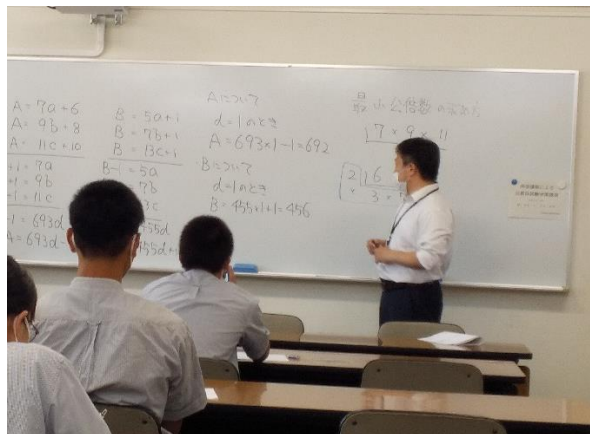 A = 7a+6
A = 9b+8
A = 11c+10
+1 = 7a
+1 = 9b
+1 = 11c
+1 = 693d
A = 693d-
B = 5a+1
B = 7b+1
B = 13c+1
B-1 = 5a
7b
3c
455d
455d+
Aについて
d=1のとき
A = 693×1-1=692
Bについて
d=1のとき
B = 455×1+1=456
最小公倍数の求め方
7 × 9 × 11
2 6
× 3